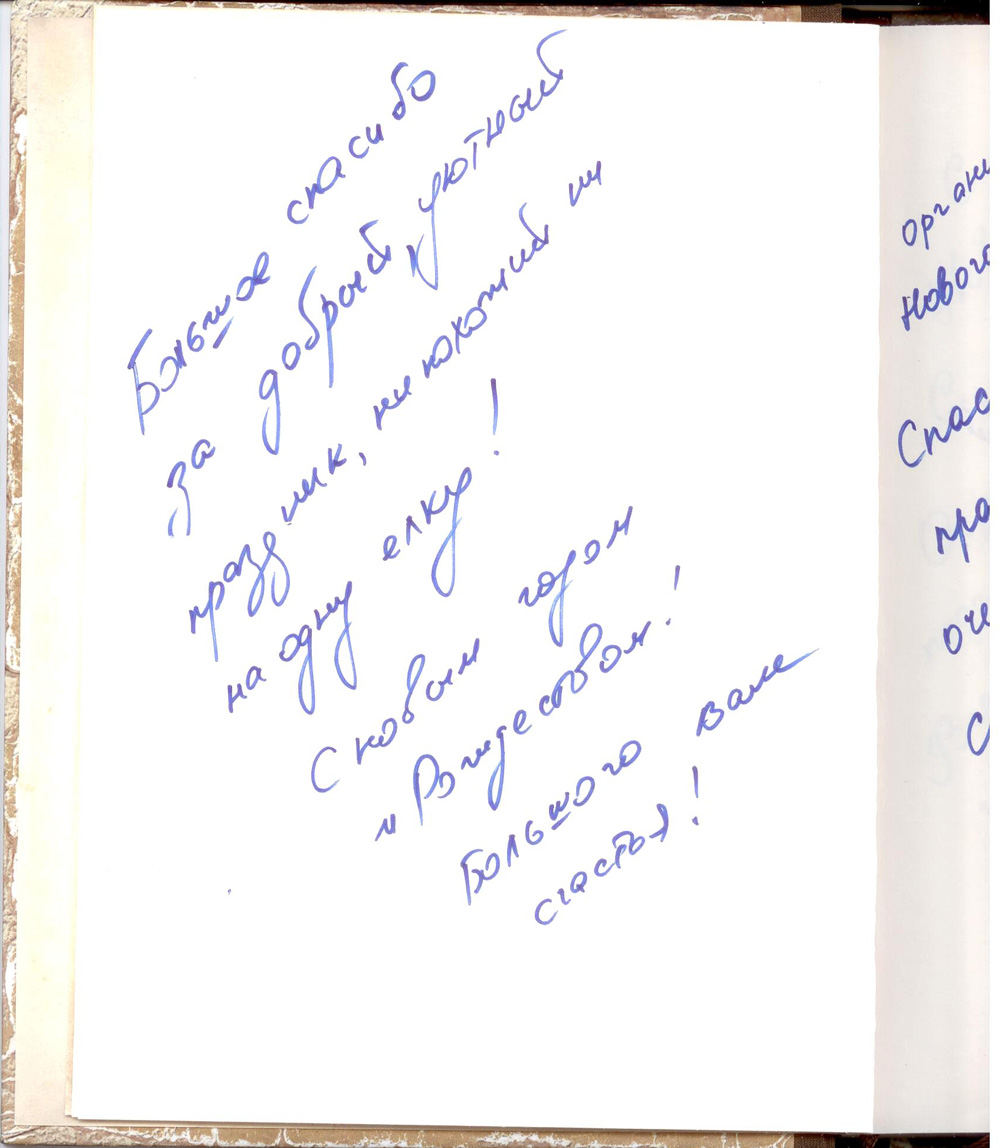 Большое спасибо
за добрый, уютный
праздник, не похожий ни
на одну елку!
С новым годом
и Рождеством!
Большого вам
счастья!
орган
Нового
Спас
пра
оче
С